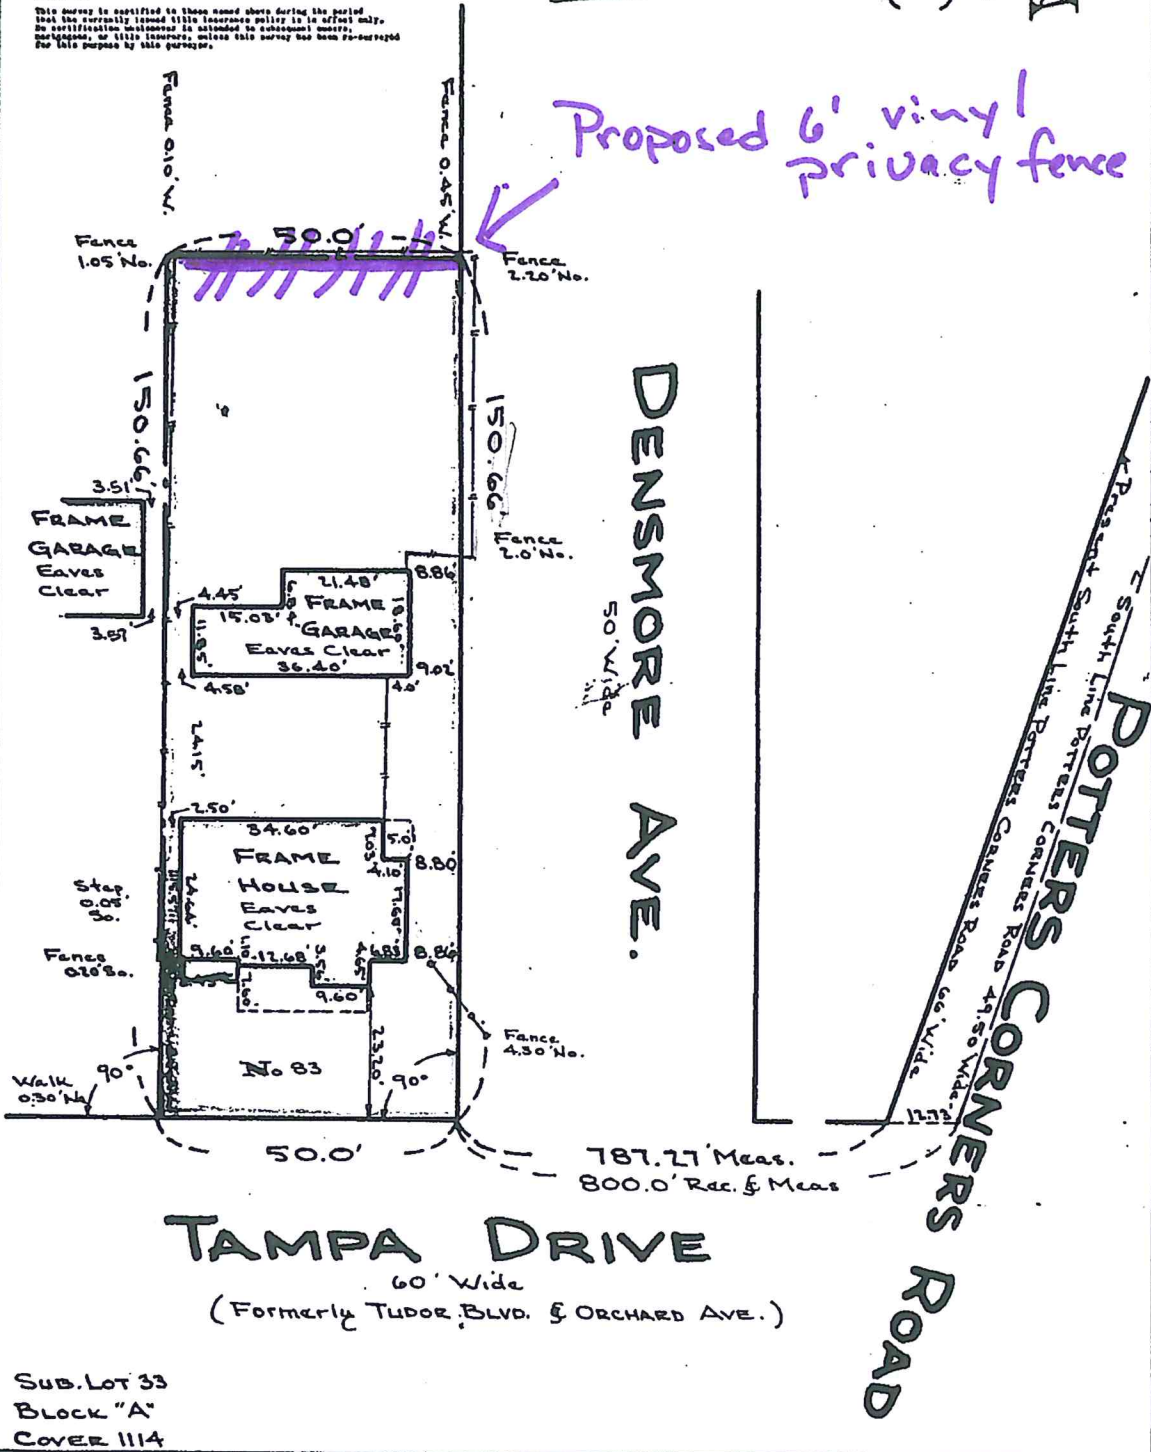 This survey is certified to those named above during the period
that the currently issued title insurance policy is in effect only.
No certification whatsoever is extended to subsequent owners,
mortgagees, or title insurers, unless this survey has been re-surveyed
for this purpose by this surveyor.
Proposed 6' vinyl
privacy fence
Fence 0.10' W.
Fence 0.45' W.
Fence
1.05' No.
50.0'
Fence
2.20' No.
150.66'
150.66'
DENSMORE AVE.
50' Wide
3.51'
FRAME
GARAGE
Eaves
Clear
3.57'
Fence
2.0' No.
4.45'
21.48'
8.86'
15.03'
FRAME
GARAGE
Eaves Clear
11.85'
36.40'
9.02'
4.58'
4.0'
24.15'
2.50'
34.60'
7.03'
5.0'
4.10'
8.80'
FRAME
HOUSE
Eaves
Clear
24.64'
17.60'
Step
0.05'
So.
Fence
0.20' So.
9.60'
1.10'
12.68'
3.56'
4.65'
6.83'
8.86'
7.60'
9.60'
23.20'
Fence
4.30' No.
No 83
90°
90°
Walk
0.30' No.
50.0'
787.27' Meas.
800.0' Rec. & Meas
12.73'
Present South Line POTTERS CORNERS ROAD 66' Wide
South Line POTTERS CORNERS ROAD 49.50' Wide
POTTERS CORNERS ROAD
TAMPA DRIVE
60' Wide
(Formerly TUDOR BLVD. & ORCHARD AVE.)
SUB. LOT 33
BLOCK "A"
COVER 1114